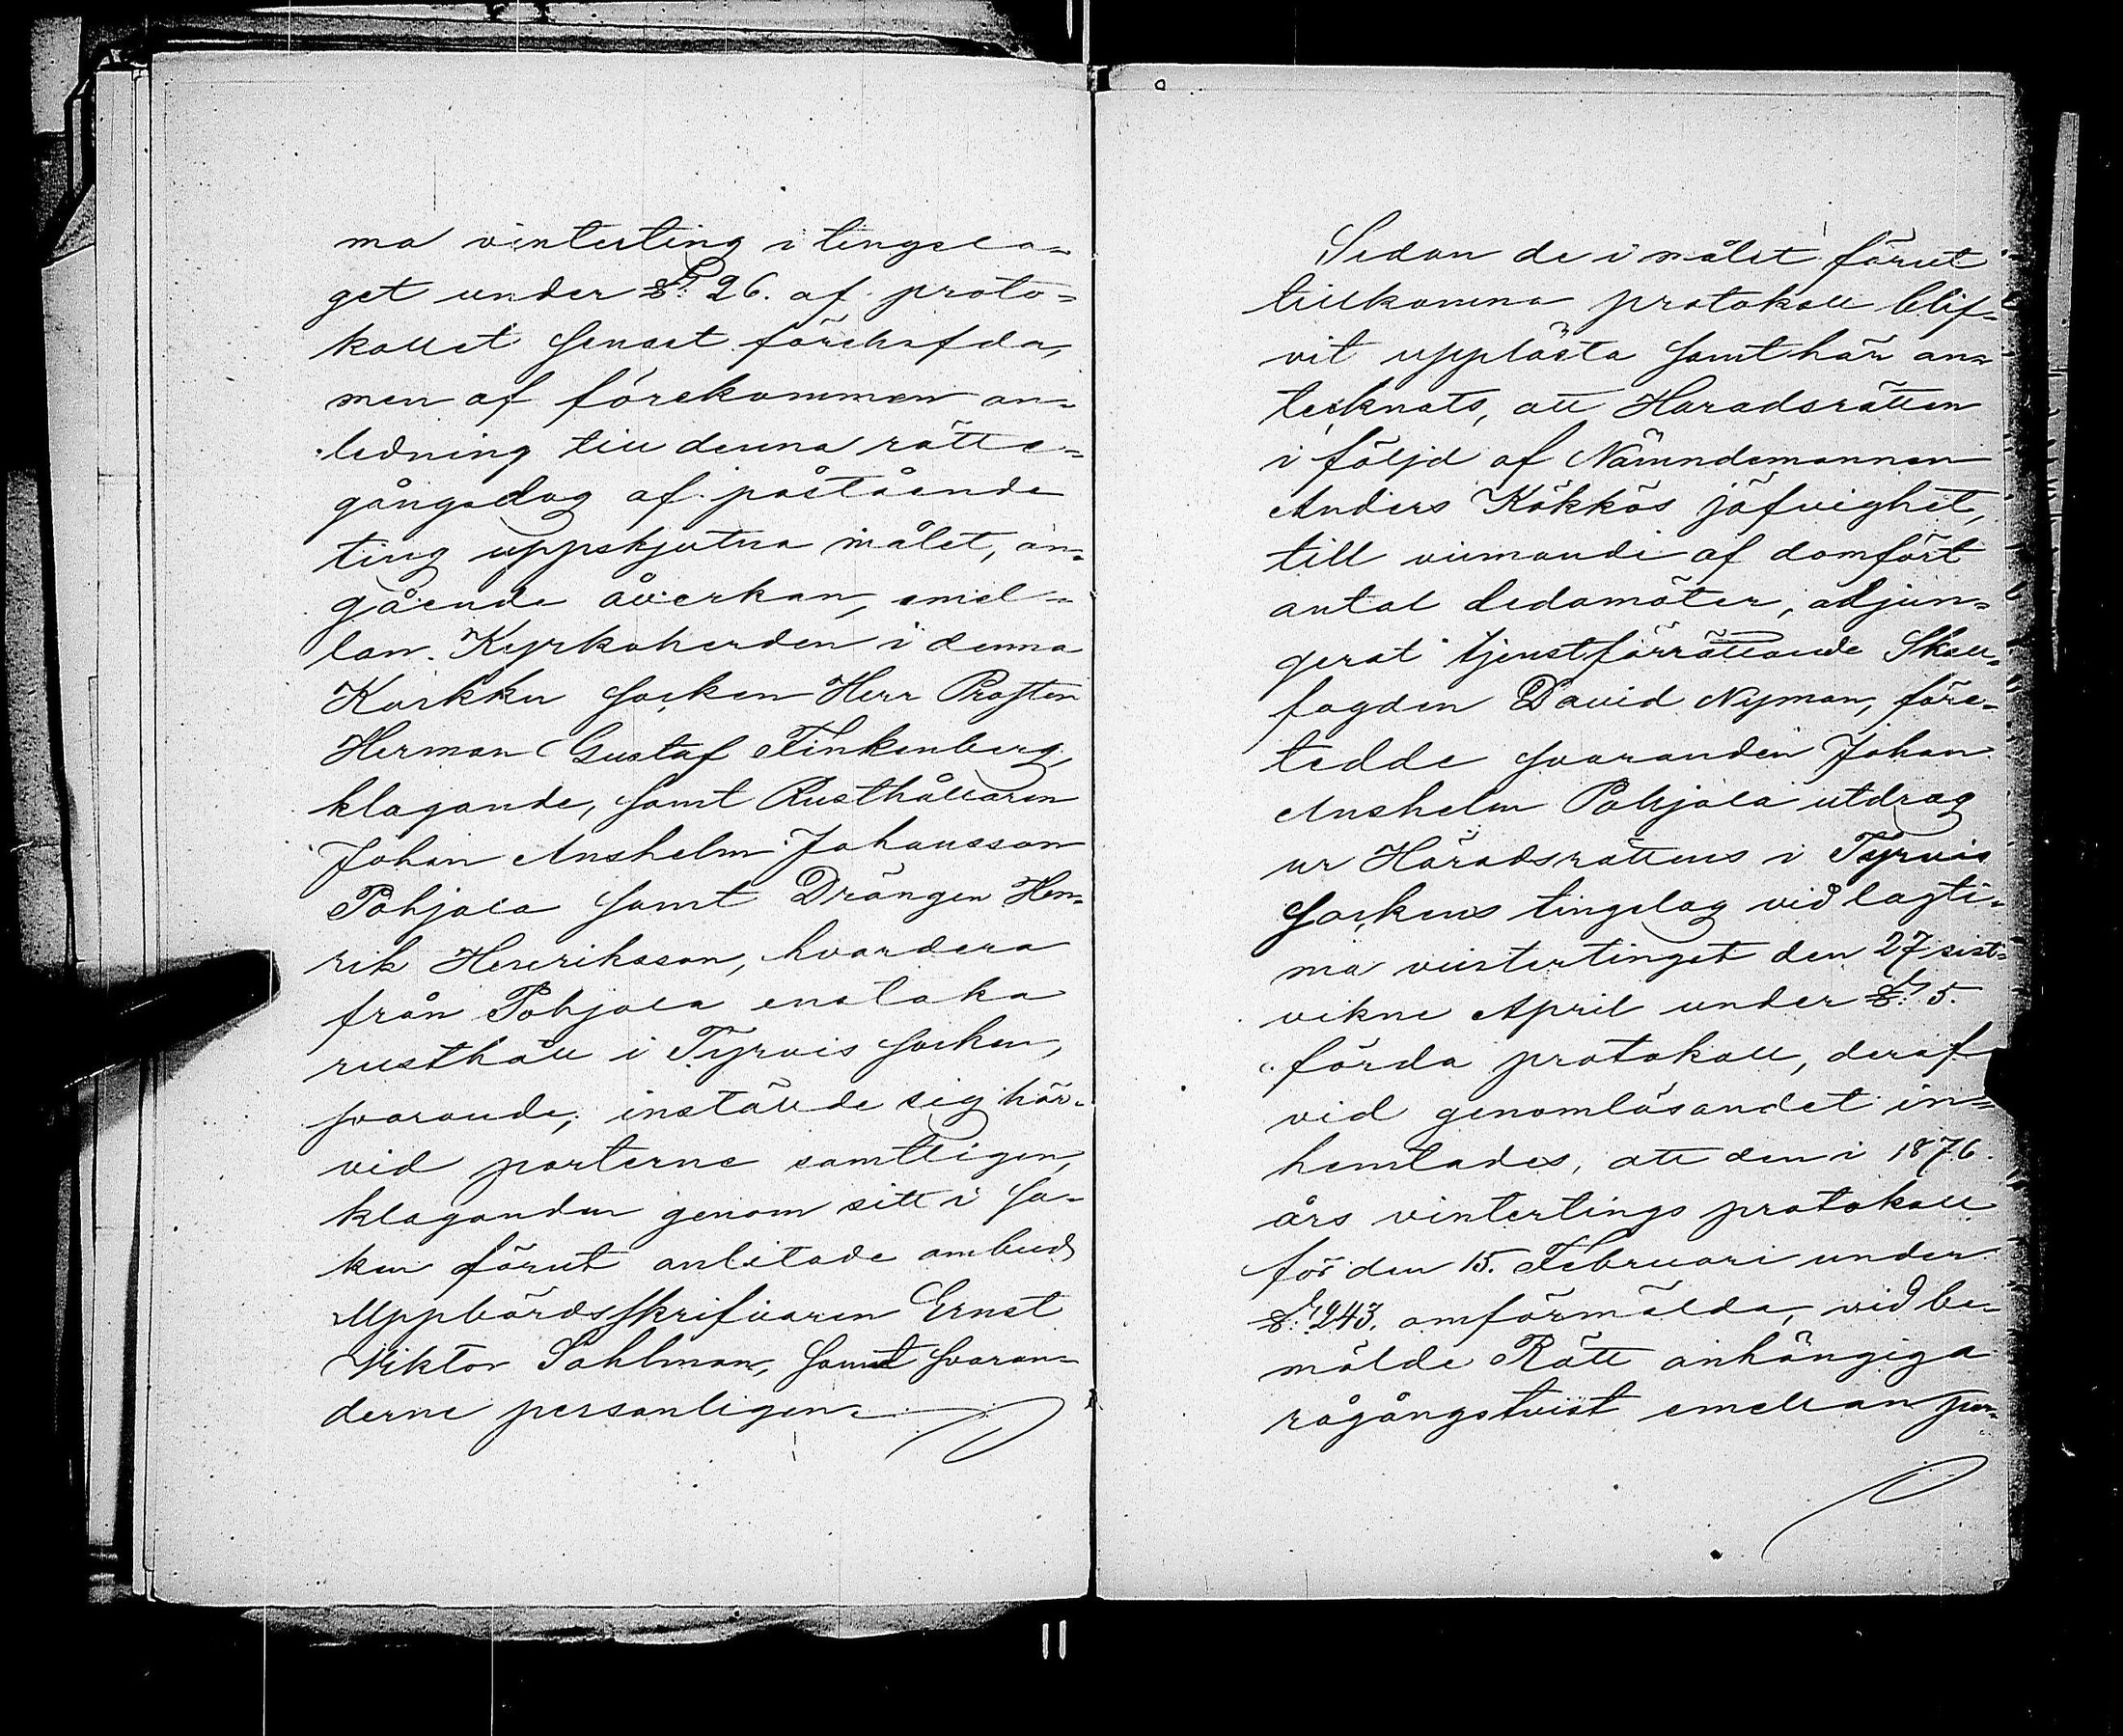 ma vinterting i tingsla-
get under §. 26. af proto-
kollet senast förehafda,
men af förekommen an-
ledning till denna rätte-
gångsdag af påstående
ting uppskjutna målet, an-
gående åverkan, emel-
lan Kyrkoherden i denna
Karkku socken Herr Prosten
Herman Gustaf Finkenberg,
klagande, samt Rusthållaren
Johan Anshelm Johansson
Pohjala samt Drängen Hen-
rik Henriksson, hvardera
från Pohjala enstaka
rusthåll i Tyrvis socken,
svarande; inställde sig här-
vid parterne samtligen,
klaganden genom sitt i sa-
ken förut anlitade ombud
Uppbördsskrifvaren Ernst
Viktor Sahlman, samt svaran-
derne personligen.
Sedan de i målet förut
tillkomna protokoll blif-
vit upplästa samt här an-
tecknats, att Häradsrätten
i följd af Nämndemannen
Anders Kökkös jäfvighet,
till vinnande af domfört
antal ledamöter, adjun-
gerat tjenstförrättande Skall-
fogden David Nyman, före-
tedde svaranden Johan
Anshelm Pohjala utdrag
ur Häradsrättens i Tyrvis
Sockens tingslag vid lagti-
ma vintertinget den 27 sist-
vikne April under §. 5.
förda protokoll, deraf
vid genomläsandet in-
hemtades, att den i 1876.
års vintertings protokoll
för den 15. Februari under
§. 243. omförmälda, vid be-
mälde Rätt anhängiga
rågångstvist emellan